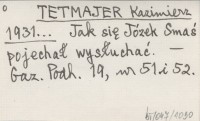 TETMAJER Kazimierz
1931... Jak się Józek Smaś
pojechał wysłuchać. —
Gaz. Podh. 19, nr 51 i 52.